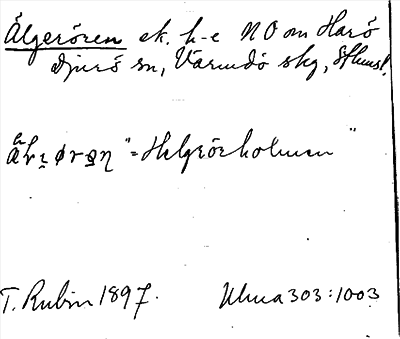 Älgerören ek. h-e NO om Harö
Djurö sn, Värmdö skg, Sthmsl.
"=Helgeörholmen"
T. Rubin 1897. Ulma 303:1003